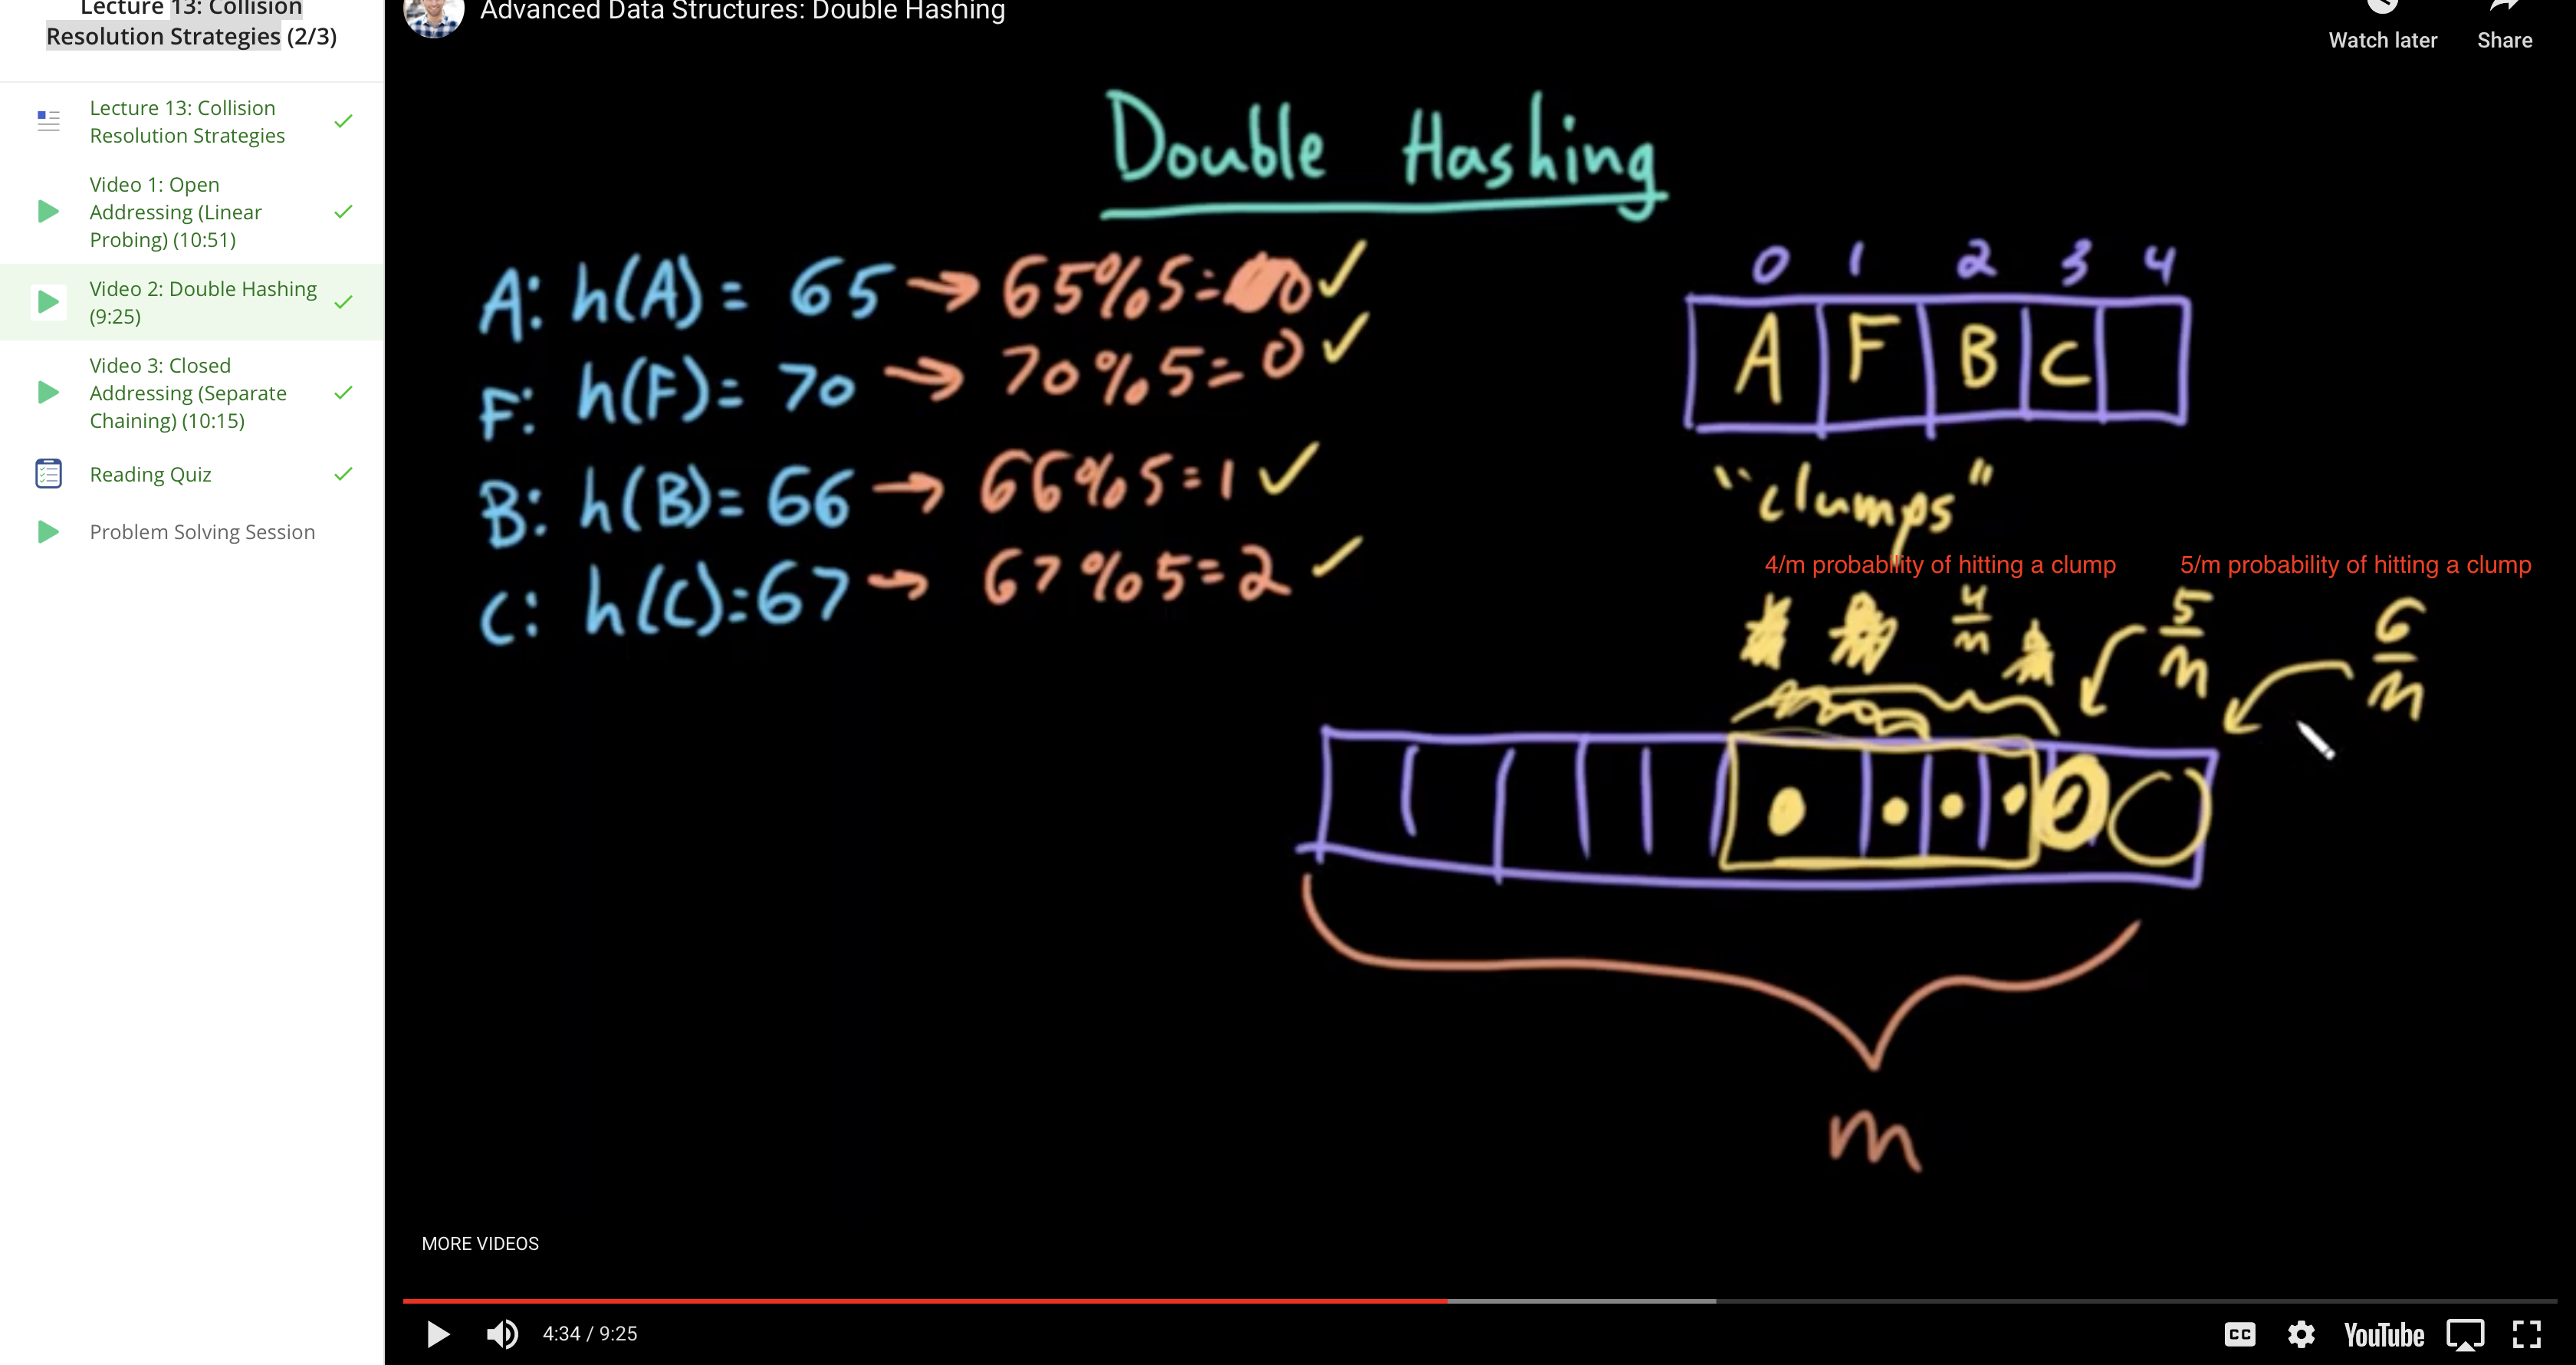 Lecture 13: Collision
Resolution Strategies (2/3)
Lecture 13: Collision
Resolution Strategies
Video 1: Open
Addressing (Linear
Probing) (10:51)
Video 2: Double Hashing
(9:25)
Video 3: Closed
Addressing (Separate
Chaining) (10:15)
Reading Quiz
Problem Solving Session
Advanced Data Structures: Double Hashing
Watch later
Share
Double Hashing
A: h(A) = 65 → 65%5=0 ✓
F: h(F) = 70 → 70%5=0 ✓
B: h(B) = 66 → 66%5=1 ✓
C: h(C)=67 → 67%5=2 ✓
0 1 2 3 4
A F B C
"clumps"
4/m probability of hitting a clump
5/m probability of hitting a clump
4/m
5/m
6/m
m
MORE VIDEOS
4:34 / 9:25
CC
YouTube